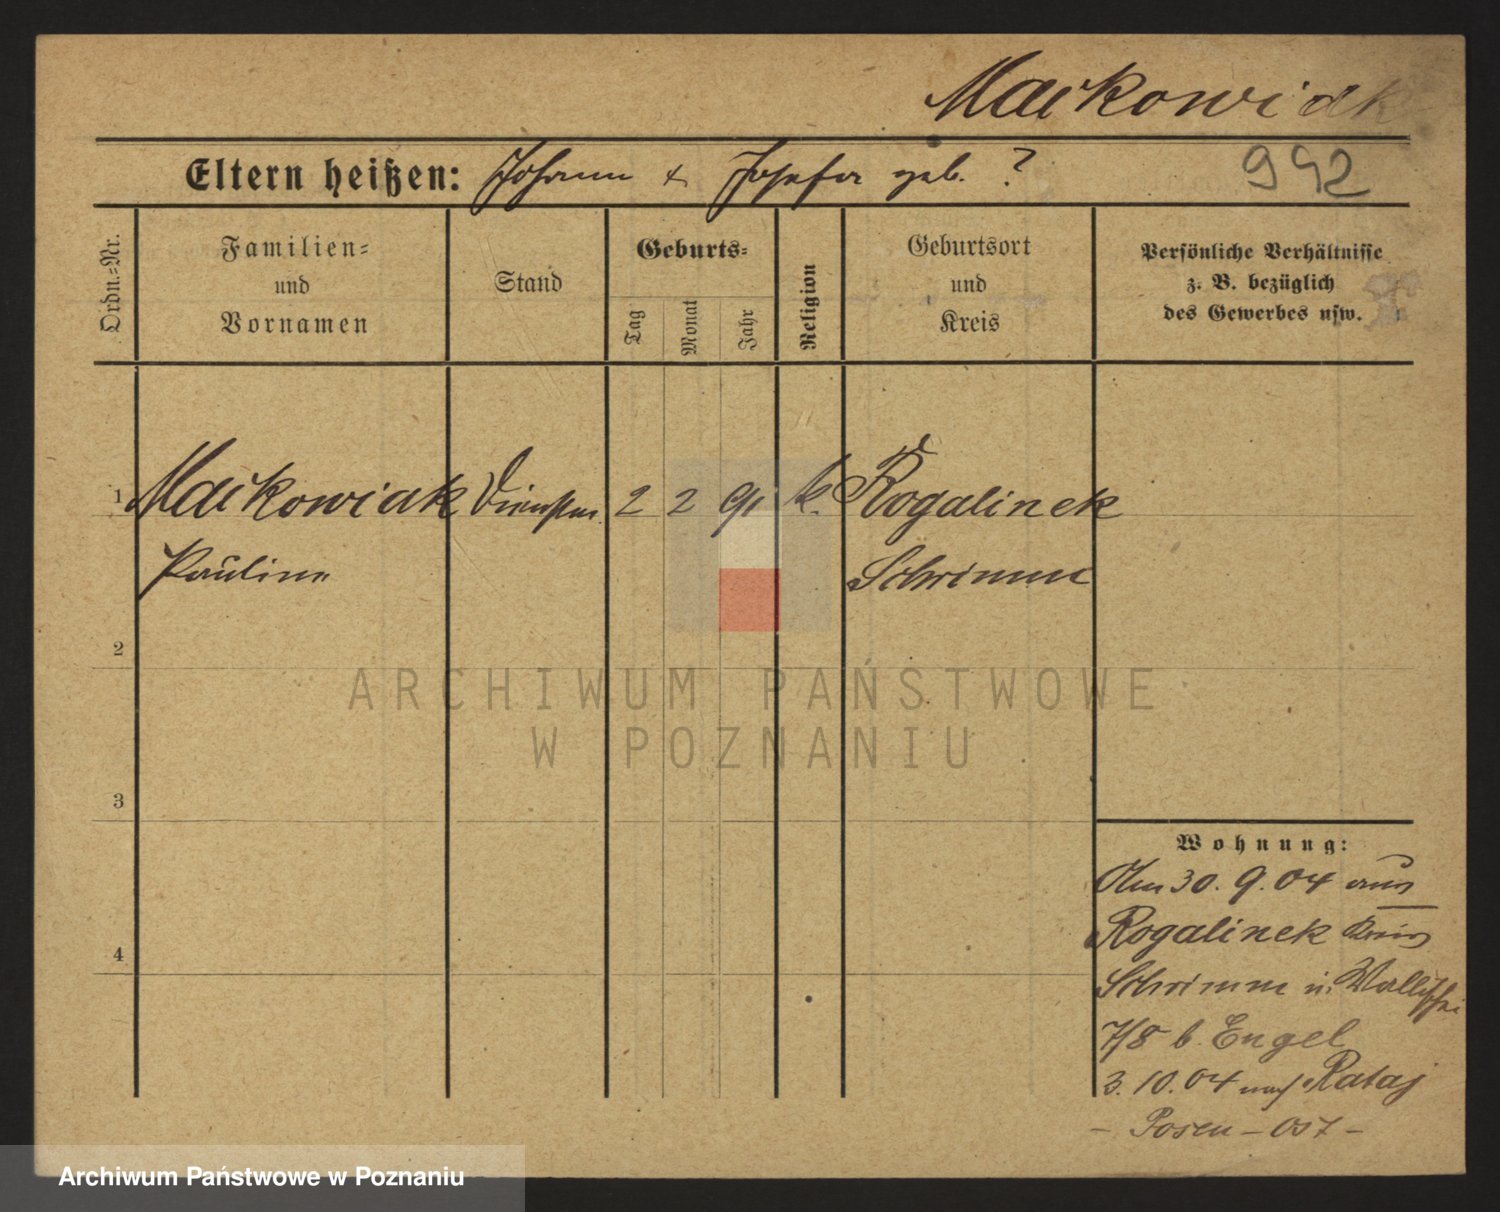 Maikowiak
Eltern heißen: Johann & Josefa geb. ?
942
Ordn.=Nr.
Familien=
und
Vornamen
Stand
Geburts=
Tag
Monat
Jahr
Religion
Geburtsort
und
Kreis
Persönliche Verhältnisse
z. B. bezüglich
des Gewerbes usw.
1 Maikowiak 2 2 91 k. Rogalinek
Pauline Schrimm
2
3
4
Wohnung:
Am 30. 9. 04 aus
Rogalinek Kreis
Schrimm n. Wallischei
7/8 b. Engel
3. 10. 04 nach Rataj
- Posen - Ost -
ARCHIWUM PAŃSTWOWE
W POZNANIU
Archiwum Państwowe w Poznaniu